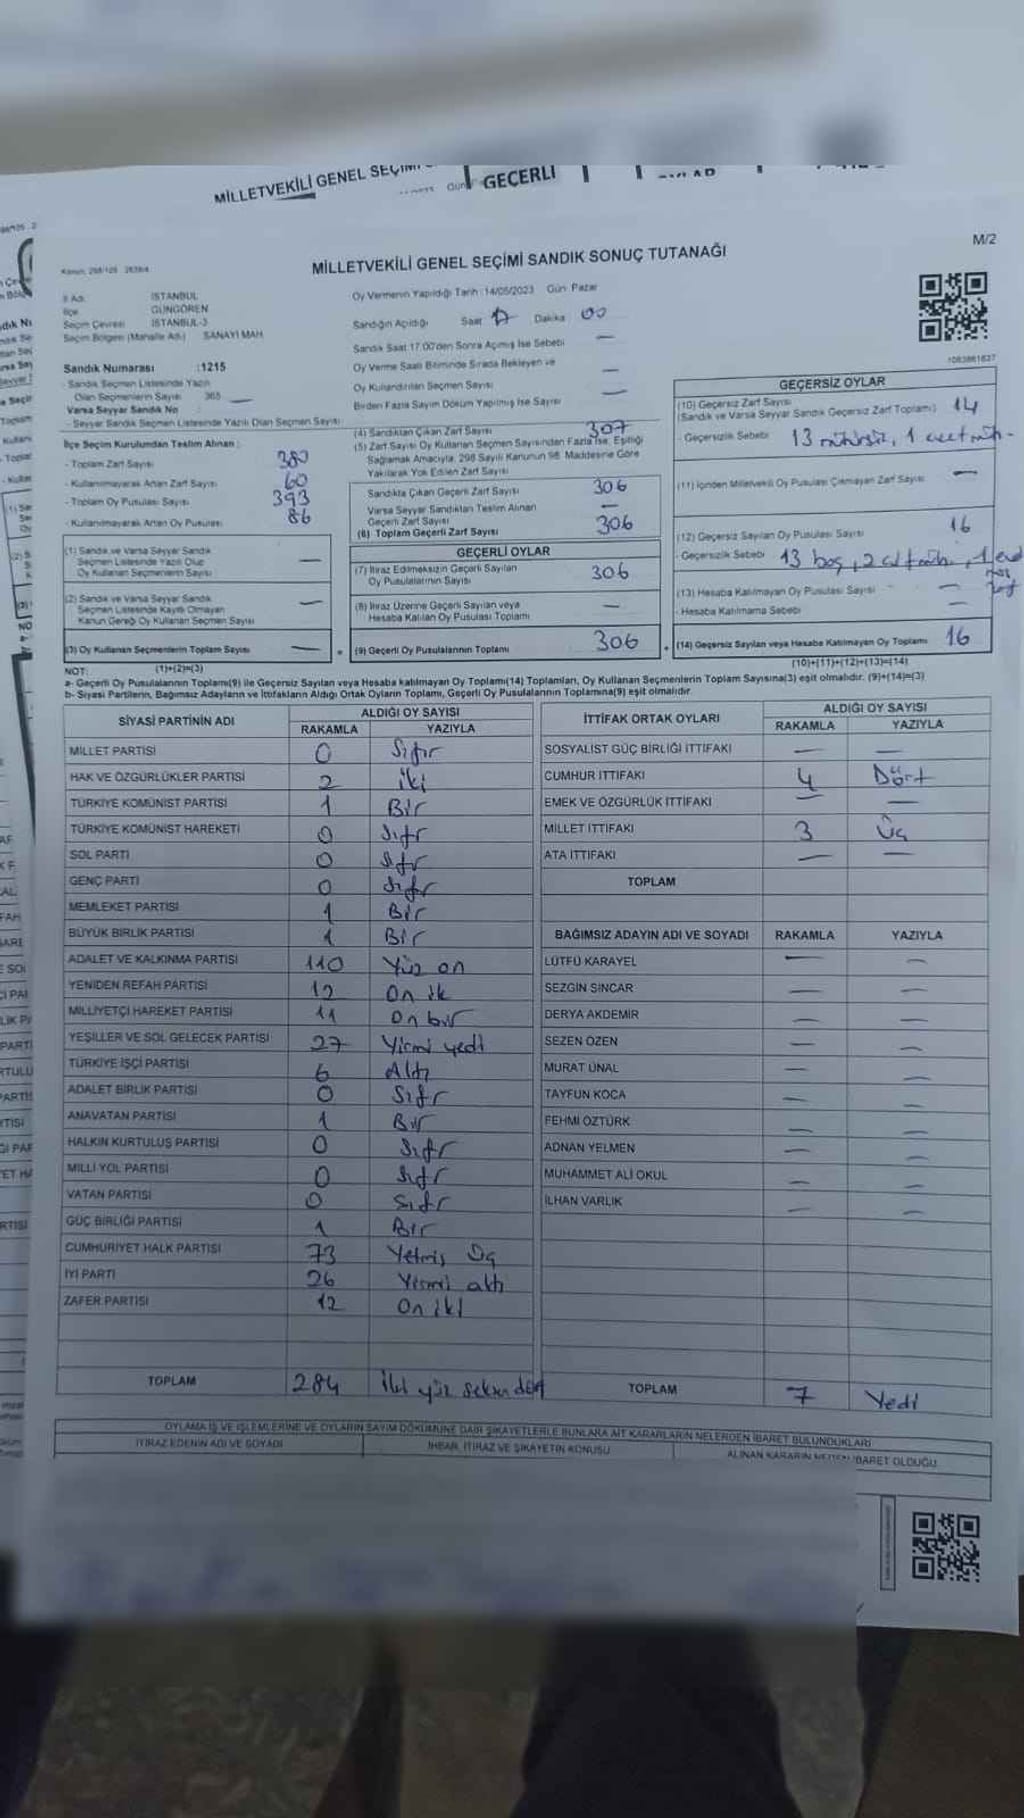 MİLLETVEKİLİ GENEL SEÇİMİ
GEÇERLİ
M/2
MİLLETVEKİLİ GENEL SEÇİMİ SANDIK SONUÇ TUTANAĞI
İl Adı İSTANBUL
İlçe GÜNGÖREN
Seçim Çevresi İSTANBUL-3
Seçim Bölgesi (Mahalle Adı) SANAYİ MAH
Sandık Numarası :1215
- Sandık Seçmen Listesinde Yazılı
Olan Seçmenlerin Sayısı 365
Varsa Seyyar Sandık No
- Seyyar Sandık Seçmen Listesinde Yazılı Olan Seçmen Sayısı
İlçe Seçim Kurulundan Teslim Alınan :
- Toplam Zarf Sayısı 380
- Kullanılmayarak Artan Zarf Sayısı 60
- Toplam Oy Pusulası Sayısı 393
- Kullanılmayarak Artan Oy Pusulası 86
(1) Sandık ve Varsa Seyyar Sandık
Seçmen Listesinde Yazılı Olup
Oy Kullanan Seçmenlerin Sayısı —
(2) Sandık ve Varsa Seyyar Sandık
Seçmen Listesinde Kayıtlı Olmayan
Kanun Gereği Oy Kullanan Seçmen Sayısı —
(3) Oy Kullanan Seçmenlerin Toplam Sayısı —
(1)+(2)=(3)
Oy Vermenin Yapıldığı Tarih : 14/05/2023 Gün: Pazar
Sandığın Açıldığı Saat Dakika 00
Sandık Saat 17.00'den Sonra Açılmış İse Sebebi —
Oy Verme Saati Bitiminde Sırada Bekleyen ve
Oy Kullandırılan Seçmen Sayısı —
Birden Fazla Sayım Döküm Yapılmış İse Sayısı —
(4) Sandıktan Çıkan Zarf Sayısı 307
(5) Zarf Sayısı Oy Kullanan Seçmen Sayısından Fazla İse, Eşitliği
Sağlamak Amacıyla, 298 Sayılı Kanunun 98. Maddesine Göre
Yakılarak Yok Edilen Zarf Sayısı
Sandıkta Çıkan Geçerli Zarf Sayısı 306
Varsa Seyyar Sandıktan Teslim Alınan
Geçerli Zarf Sayısı —
(6) Toplam Geçerli Zarf Sayısı 306
GEÇERLİ OYLAR
(7) İtiraz Edilmeksizin Geçerli Sayılan
Oy Pusulalarının Sayısı 306
(8) İtiraz Üzerine Geçerli Sayılan veya
Hesaba Katılan Oy Pusulası Toplamı —
(9) Geçerli Oy Pusulalarının Toplamı 306
1083861637
GEÇERSİZ OYLAR
(10) Geçersiz Zarf Sayısı
(Sandık ve Varsa Seyyar Sandık Geçersiz Zarf Toplamı) 14
- Geçersizlik Sebebi 13 mühürsüz, 1
(11) İçinden Milletvekili Oy Pusulası Çıkmayan Zarf Sayısı —
(12) Geçersiz Sayılan Oy Pusulası Sayısı 16
- Geçersizlik Sebebi 13 boş, 2
(13) Hesaba Katılmayan Oy Pusulası Sayısı —
- Hesaba Katılmama Sebebi —
(14) Geçersiz Sayılan veya Hesaba Katılmayan Oy Toplamı 16
(10)+(11)+(12)+(13)=(14)
NOT:
a- Geçerli Oy Pusulalarının Toplamı(9) ile Geçersiz Sayılan veya Hesaba katılmayan Oy Toplamı(14) Toplamları, Oy Kullanan Seçmenlerin Toplam Sayısına(3) eşit olmalıdır. (9)+(14)=(3)
b- Siyasi Partilerin, Bağımsız Adayların ve İttifakların Aldığı Ortak Oyların Toplamı, Geçerli Oy Pusulalarının Toplamına(9) eşit olmalıdır
SİYASİ PARTİNİN ADI ALDIĞI OY SAYISI
RAKAMLA YAZIYLA
MİLLET PARTİSİ 0 Sıfır
HAK VE ÖZGÜRLÜKLER PARTİSİ 2 iki
TÜRKİYE KOMÜNİST PARTİSİ 1 Bir
TÜRKİYE KOMÜNİST HAREKETİ 0 Sıfır
SOL PARTİ 0 Sıfır
GENÇ PARTİ 0 Sıfır
MEMLEKET PARTİSİ 1 Bir
BÜYÜK BİRLİK PARTİSİ 1 Bir
ADALET VE KALKINMA PARTİSİ 110 Yüz on
YENİDEN REFAH PARTİSİ 12 On iki
MİLLİYETÇİ HAREKET PARTİSİ 11 On bir
YEŞİLLER VE SOL GELECEK PARTİSİ 27 Yirmi yedi
TÜRKİYE İŞÇİ PARTİSİ 6 Altı
ADALET BİRLİK PARTİSİ 0 Sıfır
ANAVATAN PARTİSİ 1 Bir
HALKIN KURTULUŞ PARTİSİ 0 Sıfır
MİLLİ YOL PARTİSİ 0 Sıfır
VATAN PARTİSİ 0 Sıfır
GÜÇ BİRLİĞİ PARTİSİ 1 Bir
CUMHURİYET HALK PARTİSİ 73 Yetmiş Üç
İYİ PARTİ 26 Yirmi altı
ZAFER PARTİSİ 12 On iki
TOPLAM 284 İki yüz seksen dört
İTTİFAK ORTAK OYLARI ALDIĞI OY SAYISI
RAKAMLA YAZIYLA
SOSYALİST GÜÇ BİRLİĞİ İTTİFAKI — —
CUMHUR İTTİFAKI 4 Dört
EMEK VE ÖZGÜRLÜK İTTİFAKI — —
MİLLET İTTİFAKI 3 Üç
ATA İTTİFAKI — —
TOPLAM
BAĞIMSIZ ADAYIN ADI VE SOYADI RAKAMLA YAZIYLA
LÜTFÜ KARAYEL — —
SEZGİN SİNCAR — —
DERYA AKDEMİR — —
SEZEN ÖZEN — —
MURAT ÜNAL — —
TAYFUN KOCA — —
FEHMİ ÖZTÜRK — —
ADNAN YELMEN — —
MUHAMMET ALİ OKUL — —
İLHAN VARLIK — —
TOPLAM 7 Yedi
OYLAMA İŞ VE İŞLEMLERİNE VE OYLARIN SAYIM DÖKÜMÜNE DAİR ŞİKAYETLERLE BUNLARA AİT KARARLARIN NELERDEN İBARET BULUNDUKLARI
İTİRAZ EDENİN ADI VE SOYADI İHBAR, İTİRAZ VE ŞİKAYETİN KONUSU ALINAN KARARIN NEDEN İBARET OLDUĞU